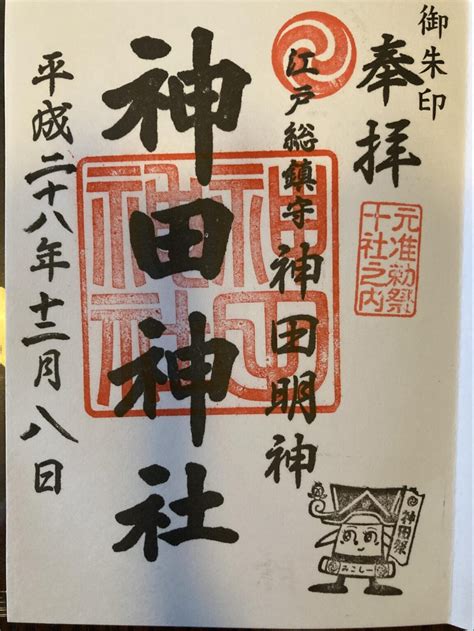 御朱印
奉拝
元准勅祭
十社之内
江戸総鎮守 神田明神
神田神社
神田
神社
平成二十八年十二月八日
神田祭
みこしー